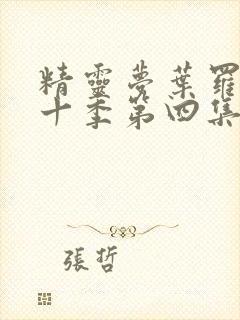 精靈夢葉羅
十季第四集
張哲